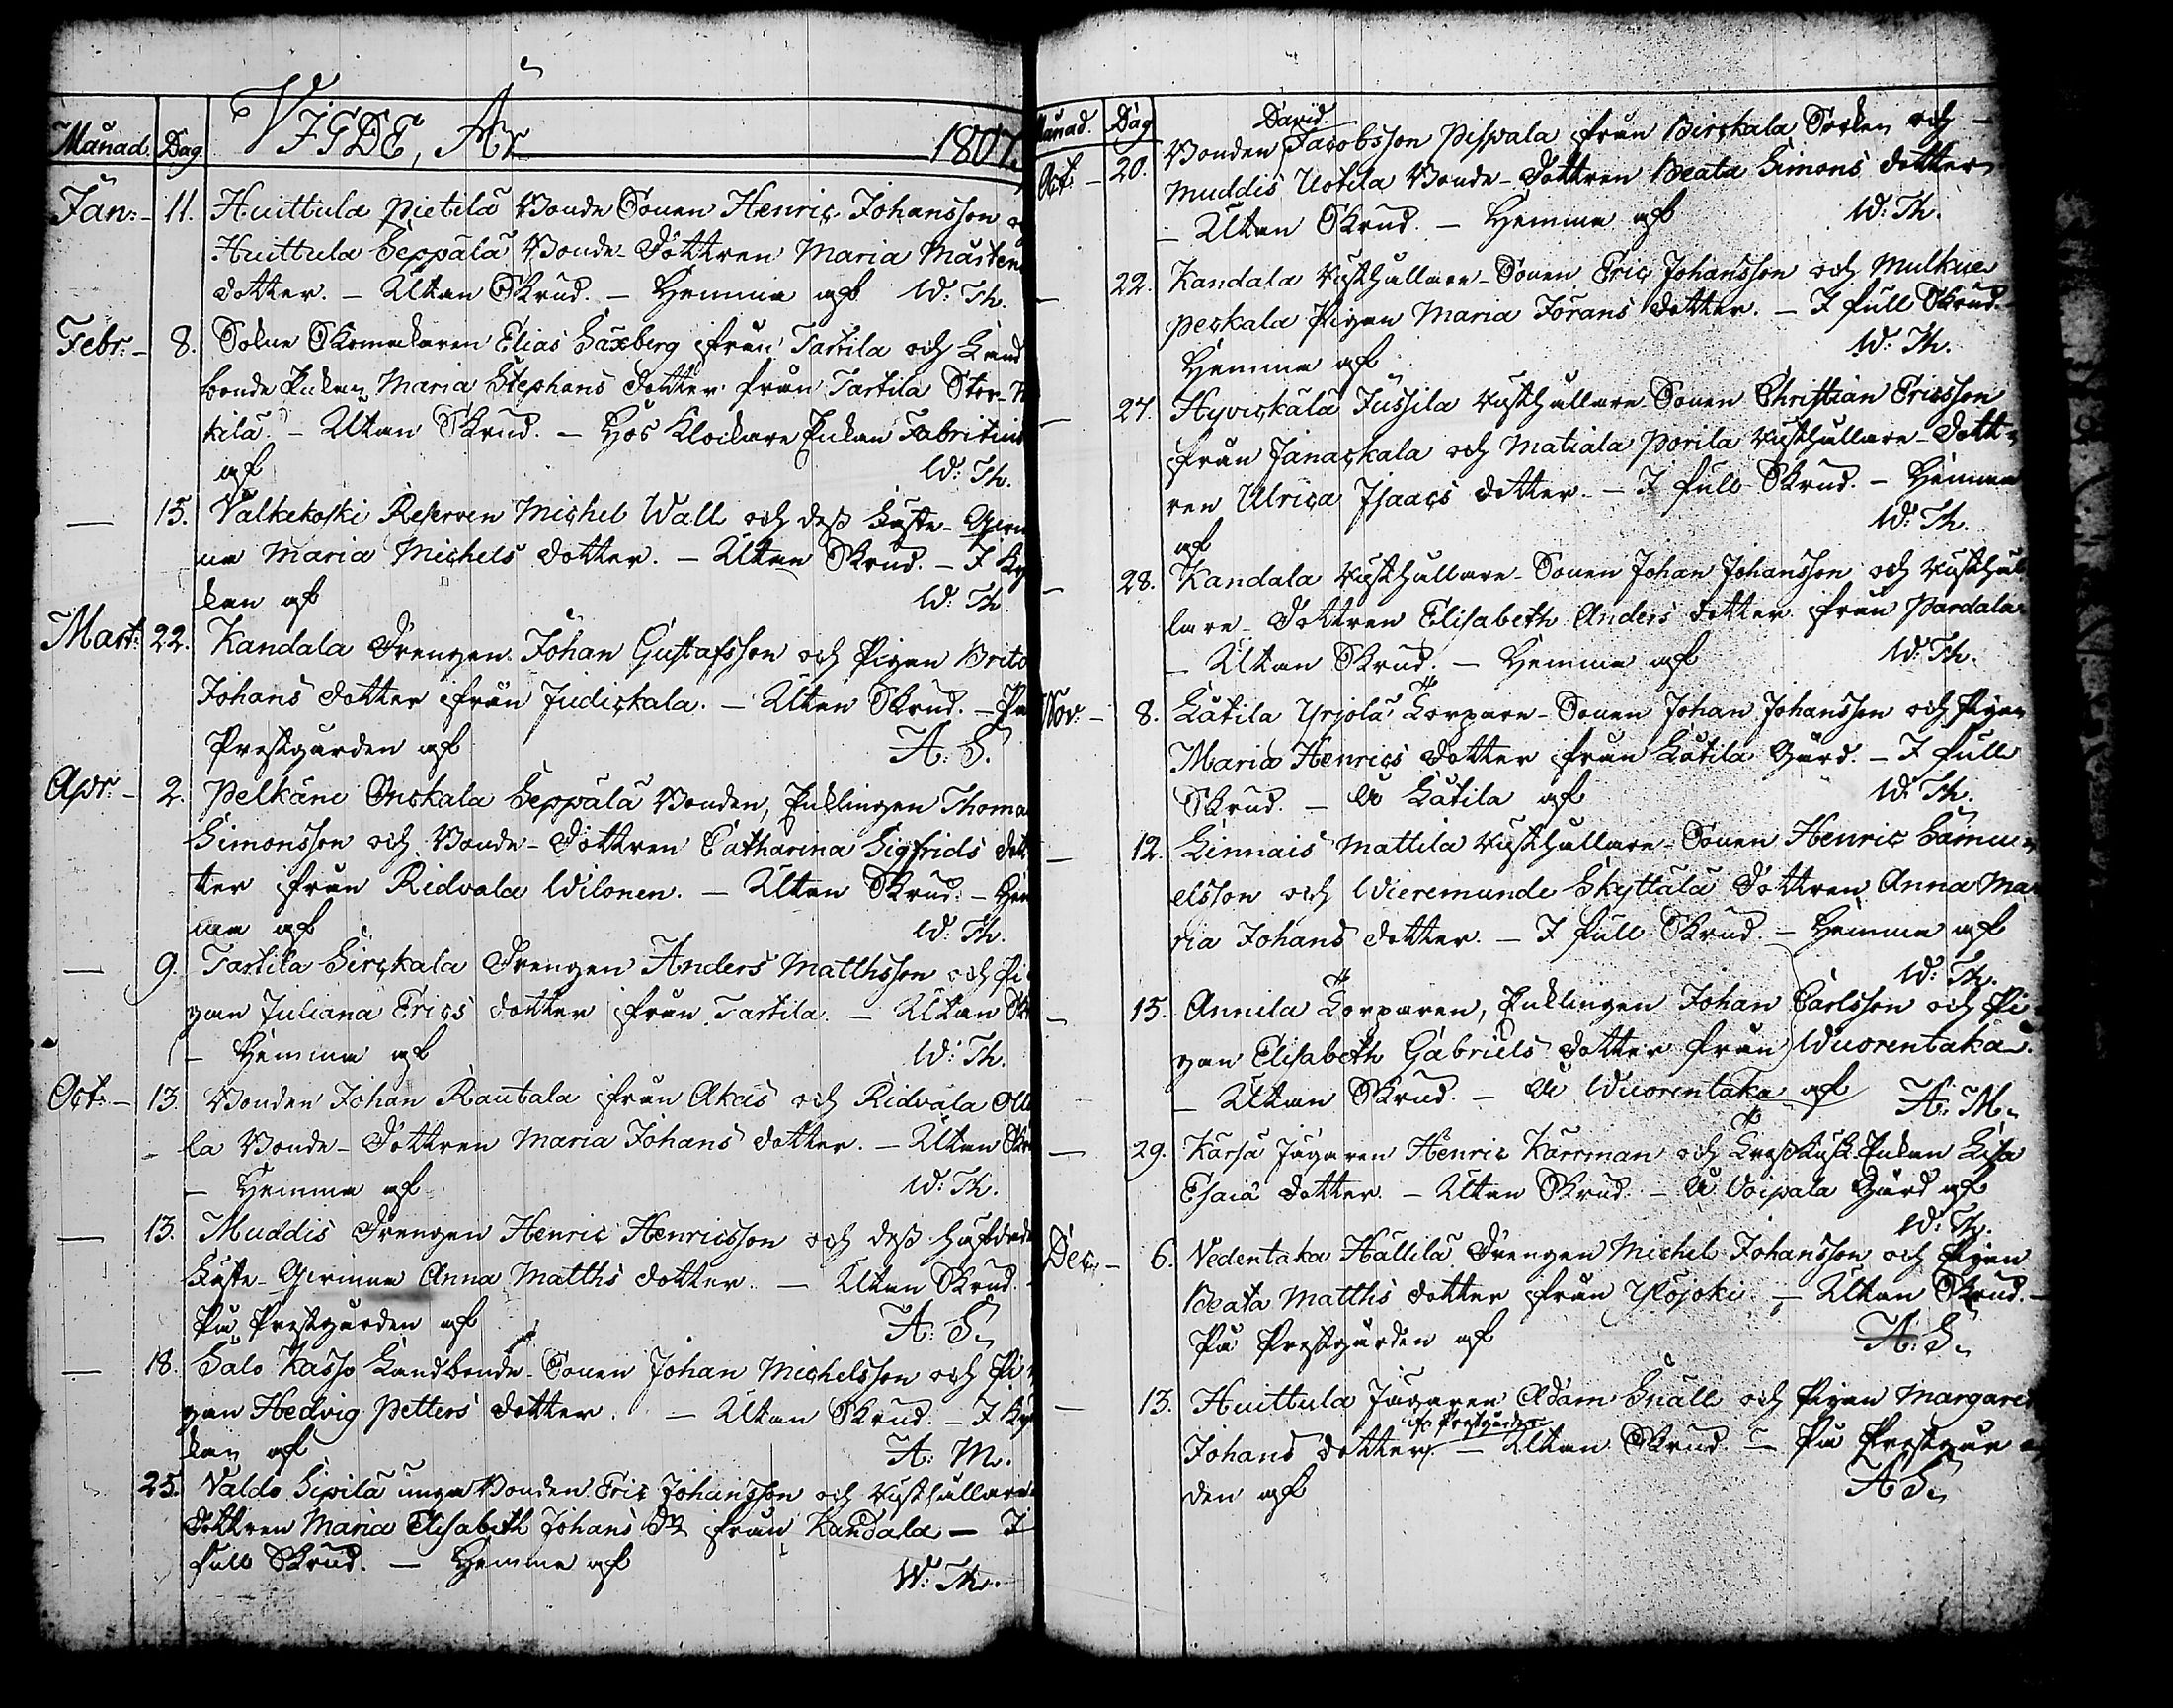 Månad. Dag. VIGDE, År 1807.
Jan: – 11. Huittula Pietilä Bonde Sonen Henric Johansson
Huittula Seppälä Bonde-Dottren Maria Mårtens
dotter. – Utan Skrud. – Hemma af W: Th.
Febr: – 8. Sokne Skomakaren Elias Saxberg från Tarttila och Land
bonde Enkan Maria Stephans dotter från Tarttila Stor-
kilä. – Utan Skrud. – Hos Klockare Enkan Fabritius
af W: Th.
— 15. Valkekoski Reserven Michel Wall och dess Fäste-Qvin
na Maria Michels dotter. – Utan Skrud. – I Kyr
kan af W: Th.
Mart: 22. Kandala Drengen Johan Gustafsson och Pigan Brita
Johans dotter från Judickala. – Utan Skrud. – På
Prestgården af A. S.
Apr: – 2. Pelkäne Onskala Seppälä Bonden, Enklingen Thomas
Simonsson och Bonde-Dottren Catharina Sigfrids dot
ter från Ridvala Wilonen. – Utan Skrud. – Hem
ma af W: Th.
— 9. Tarttila Sirckala Drengen Anders Matthsson och Pi
gan Juliana Erics dotter från Tarttila. – Utan Sk
– Hemma af W: Th.
Oct: – 13. Bonden Johan Rautala från Akas och Ridvala Olli
la Bonde-Dottren Maria Johans dotter. – Utan Skr
– Hemma af W: Th.
— 13. Muddis Drengen Henric Henricsson och dess häfdade
Fäste-Qvinna Anna Matths dotter. – Utan Skrud. –
På Prestgården af A: S.
— 18. Salo Kasso Landbonde-Sonen Johan Michelsson och Pi
gan Hedvig Petters dotter. – Utan Skrud. – I Kyr
kan af A: M.
25. Valdo Sipilä unga Bonden Eric Johansson och Rusthållare
Dottren Maria Elisabeth Johans Dr från Kandala – I
full Skrud. – Hemma af W: Th.
Månad. Dag David.
Oct: – 20. Bonden Jacobsson Pispala från Birckala Socken och –
Muddis Uotila Bonde-Dottren Beata Simons dotter
– Utan Skrud. – Hemma af W: Th.
— 22. Kandala Rusthållare-Sonen Eric Johansson och Mulkue
Peckala Pigan Maria Jörans dotter. – I full Skrud. –
Hemma af W: Th.
— 27. Hyvickälä Jussila Rusthållare-Sonen Christian Ericsson
från Janackala och Matiala Porila Rusthållare-Dott
ren Ulrica Isaacs dotter. – I full Skrud. – Hemma
af W: Th.
— 28. Kandala Rusthållare-Sonen Johan Johansson och Rusthål
lare-Dottren Elisabeth Anders dotter från Pardala
– Utan Skrud. – Hemma af W: Th.
Nov: – 8. Lätilä Yrjölä Torpare-Sonen Johan Johansson och Pigan
Maria Henrics dotter från Lätilä Gård. – I full
Skrud. – På Lätilä af W: Th.
— 12. Linnais Mattila Rusthållare-Sonen Henric Samu
elsson och Wieremunde Skyttälä Dottren Anna Ma
ria Johans dotter. – I full Skrud. – Hemma af
W: Th.
— 15. Annila Torparen, Enklingen Johan Carlsson och Pi
gan Elisabeth Gabriels dotter från Wuorentaka.
– Utan Skrud. – På Wuorentaka af A: M.
— 29. Kärsä Jägaren Henric Kärrman och Enkan Lisa
Esaiæ dotter. – Utan Skrud. – På Voipala Gård af
W: Th.
Dec: – 6. Vedentaka Hällilä Drengen Michel Johansson och Pigan
Beata Matths dotter från Ylöjoki. – Utan Skrud. –
På Prestgården af A: S.
— 13. Huittula Jägaren Adam Snäll och Pigan Margaret
fr. Prestgården
Johans dotter – Utan Skrud. – På Prestgår
den af A S.